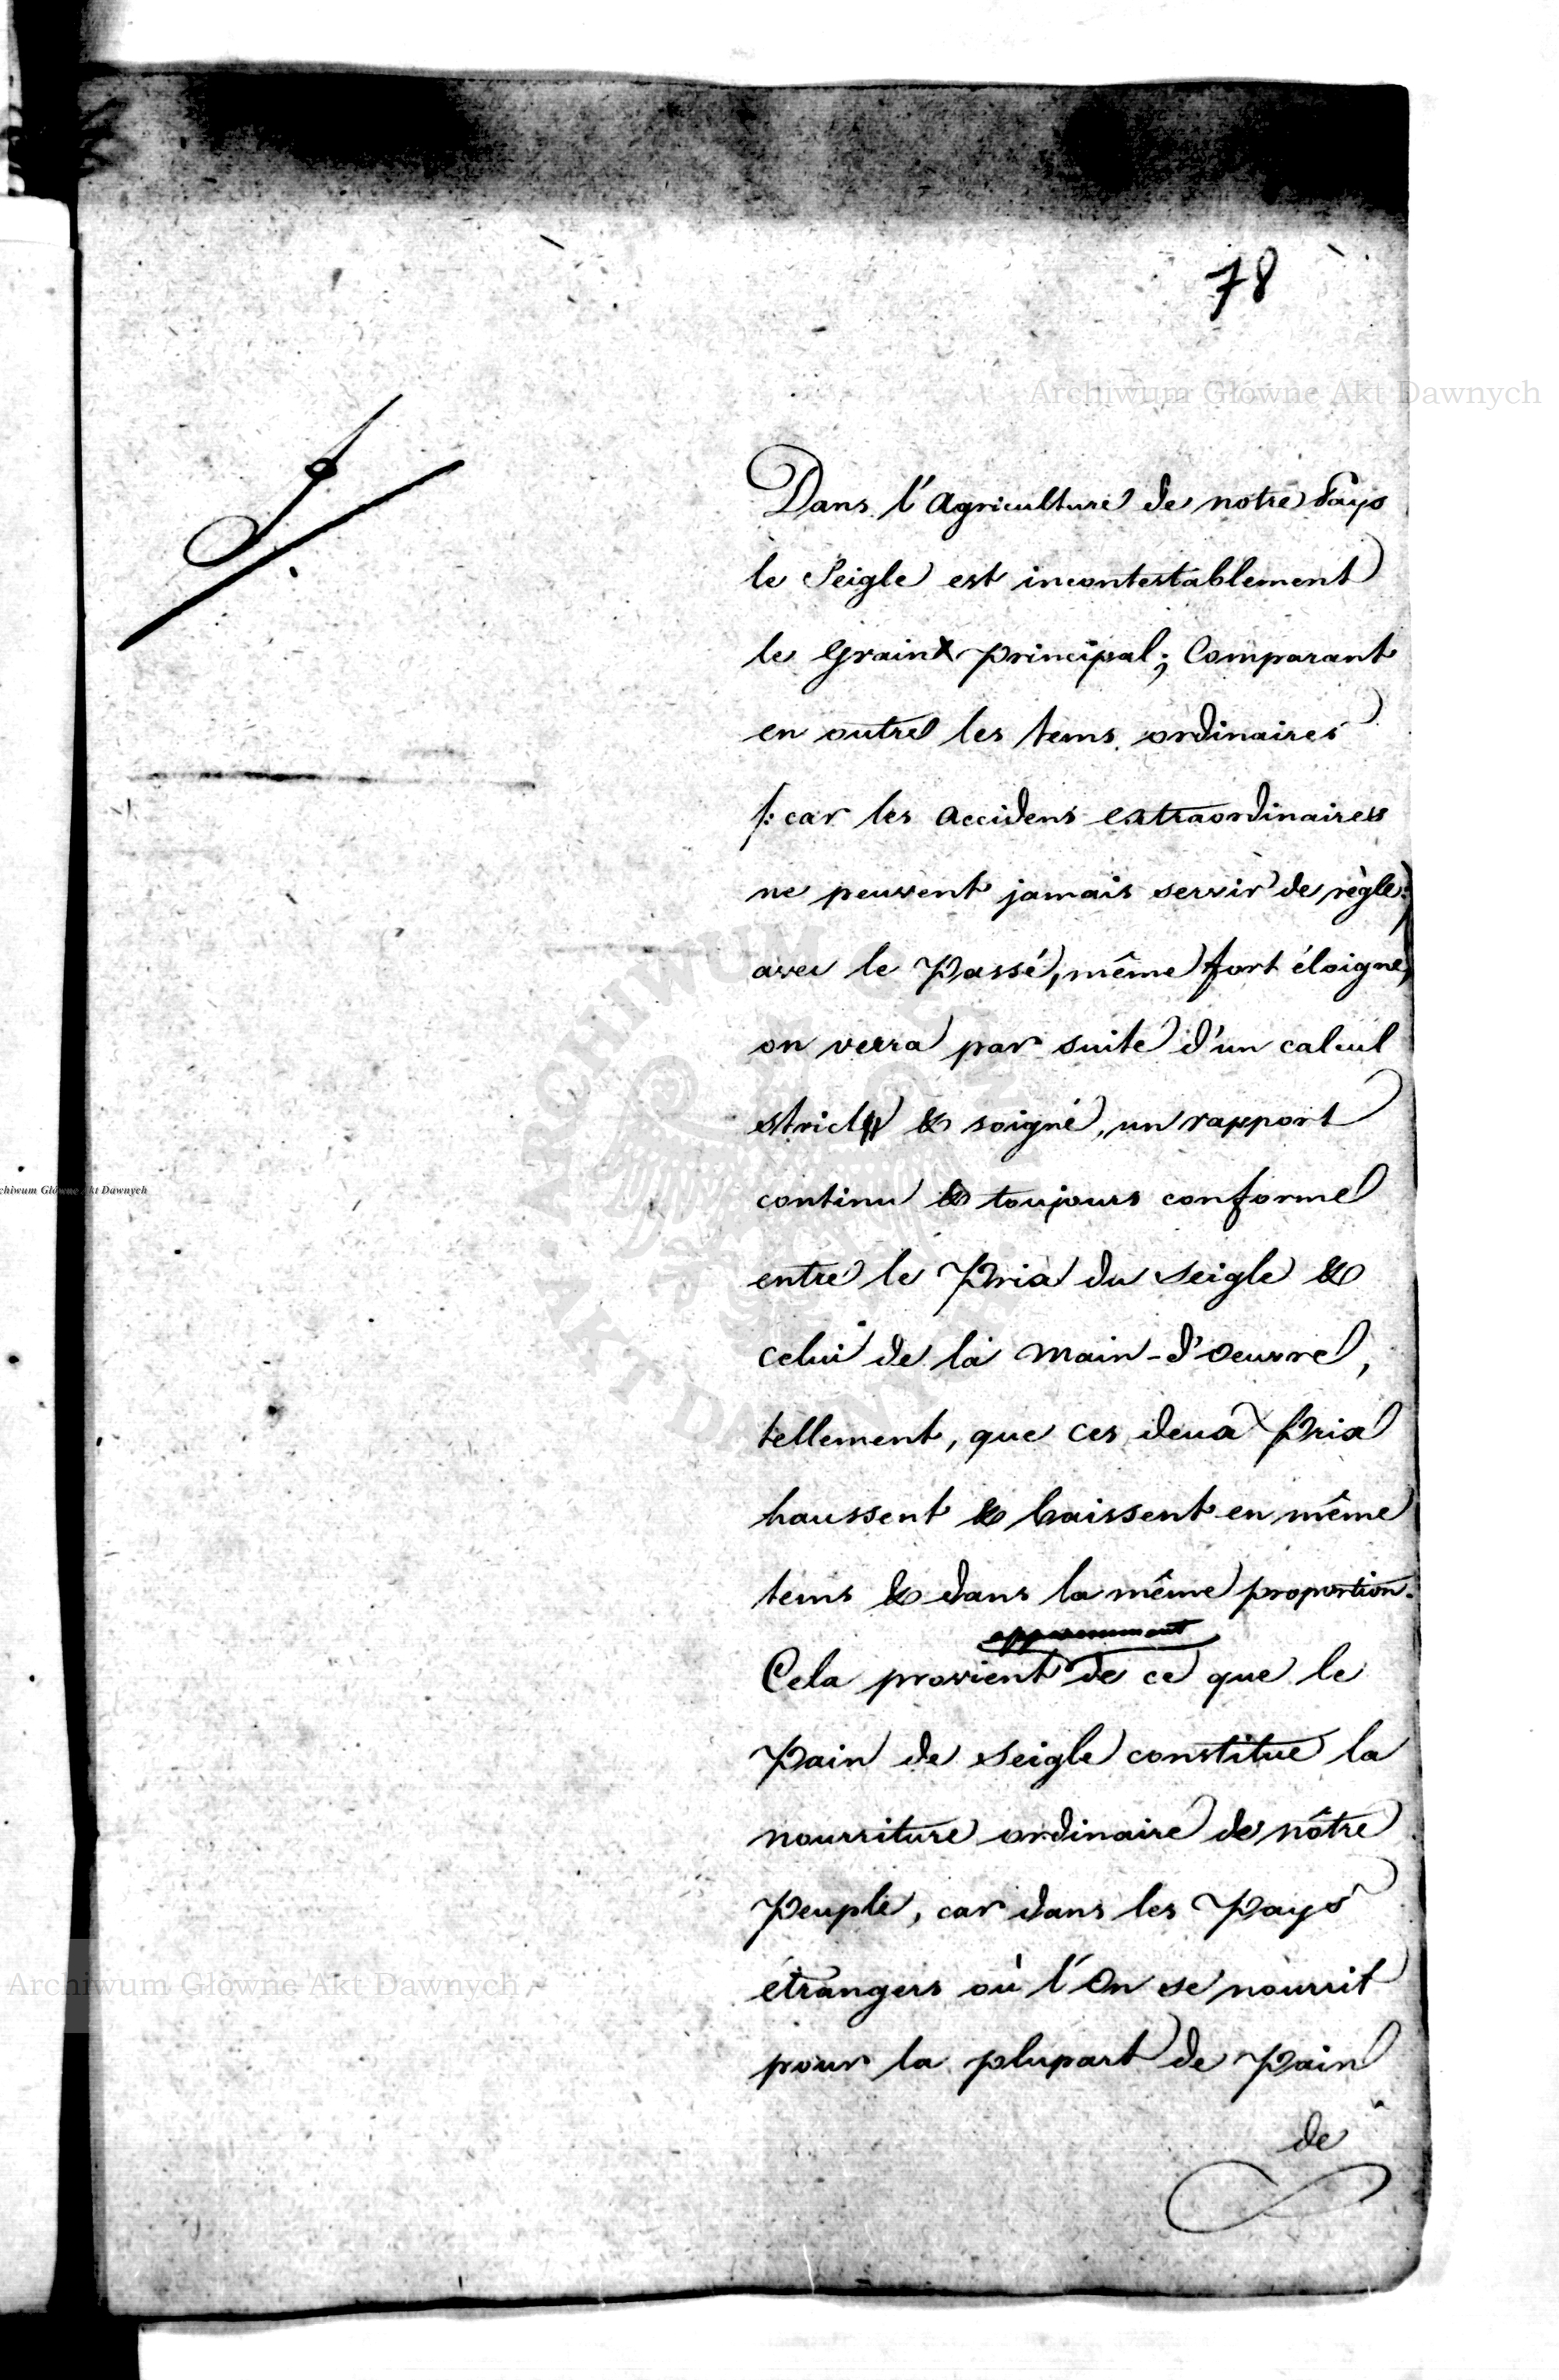 78
Archiwum Główne Akt Dawnych
Dans l'Agriculture de notre Pays
le Seigle est incontestablement
le Grain principal; Comparant
en outre les tems ordinaires
/: car les Accidens extraordinaires
ne peuvent jamais servir de règle :/
avec le Passé, même fort éloigné,
on verra par suite d'un calcul
strict & soigné, un rapport
continu & toujours conforme
entre le Prix du Seigle &
celui de la Main-d'Oeuvre,
tellement, que ces deux Prix
haussent & baissent en même
tems & dans la même proportion.
apparemment
Cela provient de ce que le
Pain de Seigle constitue la
nourriture ordinaire de nôtre
Peuple, car dans les Pays
étrangers où l'On se nourrit
pour la plupart de Pain
de
chiwum Główne Akt Dawnych
Archiwum Główne Akt Dawnych